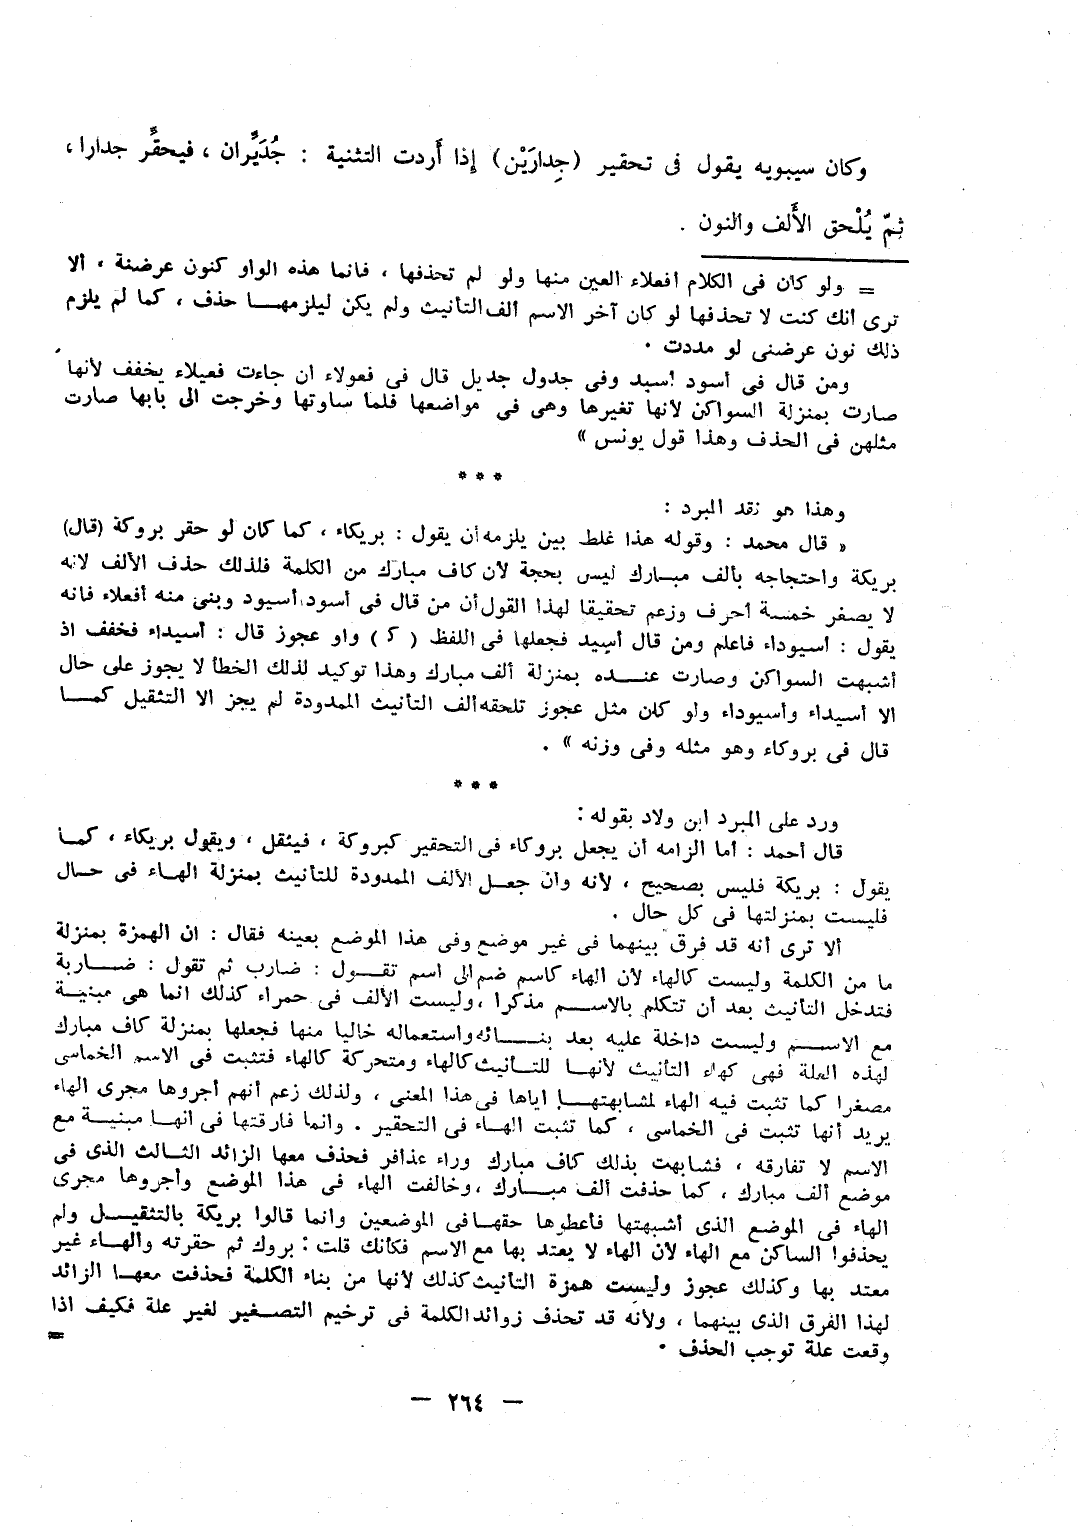 وكان سيبويه يقول فى تحقير (جِدارَيْن) إذا أَردت التثنية : جُدَيِّران ، فيحقِّر جدارا ،
ثمّ يُلْحق الأَلف والنون .
= ولو كان فى الكلام أفعلاء العين منها ولو لم تحذفها ، فانما هذه الواو كنون عرضنة ، ألا
ترى أنك كنت لا تحذفها لو كان آخر الاسم ألف التأنيث ولم يكن ليلزمهـــا حذف ، كما لم يلزم
ذلك نون عرضنى لو مددت .
ومن قال فى أسود أسيد وفى جدول جديل قال فى فعولاء ان جاءت فعيلاء يخفف لأنها
صارت بمنزلة السواكن لأنها تغيرها وهى فى مواضعها فلما ساوتها وخرجت الى بابها صارت
مثلهن فى الحذف وهذا قول يونس »
* * *
وهذا هو نقد المبرد :
« قال محمد : وقوله هذا غلط بين يلزمه أن يقول : بريكاء ، كما كان لو حقر بروكة (قال)
بريكة واحتجاجه بألف مبـارك ليس بحجة لأن كاف مبارك من الكلمة فلذلك حذف الألف لأنه
لا يصغر خمسة أحرف وزعم تحقيقا لهذا القول أن من قال فى أسود أسيود وبنى منه أفعلاء فانه
يقول : أسيوداء فاعلم ومن قال أسيد فجعلها فى اللفظ ( ك‍ ) واو عجوز قال : أسيداء فخفف اذ
أشبهت السواكن وصارت عنـــده بمنزلة ألف مبارك وهذا توكيد لذلك الخطأ لا يجوز على حال
الا أسيداء وأسيوداء ولو كان مثل عجوز تلحقه ألف التأنيث الممدودة لم يجز الا التثقيل كمـــا
قال فى بروكاء وهو مثله وفى وزنه » .
* * *
ورد على المبرد ابن ولاد بقوله :
قال أحمد : أما الزامه أن يجعل بروكاء فى التحقير كبروكة ، فيثقل ، ويقول بريكاء ، كمـا
يقول : بريكة فليس بصحيح ، لأنه وان جعـل الألف الممدودة للتأنيث بمنزلة الهـاء فى حـال
فليست بمنزلتها فى كل حال .
ألا ترى أنه قد فرق بينهما فى غير موضع وفى هذا الموضع بعينه فقال : ان الهمزة بمنزلة
ما من الكلمة وليست كالهاء لأن الهاء كاسم ضم الى اسم تقـول : ضارب ثم تقول : ضـــاربة
فتدخل التأنيث بعد أن تتكلم بالاســـم مذكرا ، وليست الألف فى حمراء كذلك انما هى مبنيـة
مع الاســـم وليست داخلة عليه بعد بنـــائه واستعماله خاليا منها فجعلها بمنزلة كاف مبارك
لهذه العلة فهى كهاء التأنيث لأنهـا للتـأنيث كالهاء ومتحركة كالهاء فتثبت فى الاسم الخماسى
مصغرا كما تثبت فيه الهاء لمشابهتهـا اياها فى هذا المعنى ، ولذلك زعم أنهم أجروها مجرى الهاء
يريد أنها تثبت فى الخماسى ، كما تثبت الهـاء فى التحقير . وانما فارقتها فى أنهـا مبنيـة مع
الاسم لا تفارقه ، فشابهت بذلك كاف مبارك وراء عذافر فحذف معها الزائد الثـالث الذى فى
موضع ألف مبارك ، كما حذفت ألف مبـــارك ، وخالفت الهاء فى هذا الموضع وأجروها مجرى
الهاء فى الموضع الذى أشبهتها فأعطوها حقهـا فى الموضعين وانما قالوا بريكة بالتثقيـــل ولم
يحذفوا الساكن مع الهاء لأن الهاء لا يعتد بها مع الاسم فكأنك قلت : بروك ثم حقرته والهـاء غير
معتد بها وكذلك عجوز وليست همزة التأنيث كذلك لأنها من بناء الكلمة فحذفت معهـا الزائد
لهذا الفرق الذى بينهما ، ولأنه قد تحذف زوائد الكلمة فى ترخيم التصـغير لغير علة فكيف اذا
وقعت علة توجب الحذف .
=
— ٢٦٤ —